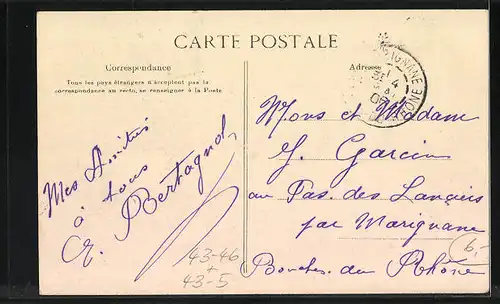 CARTE POSTALE
Correspondance
Tous les pays étrangers n'acceptent pas la
correspondance au recto, se renseigner à la Poste
Mes Amitiés
à tous
Bertagnol
43-46
+
43-5
Adresse
Mons et Madame
J. Garcin
au Pas. des Lanciers
par Marignane
Bouches du Rhône
6.-